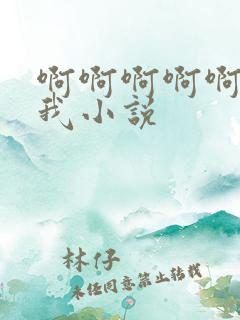 啊啊啊啊啊
我小说
林仔
未经同意禁止转载